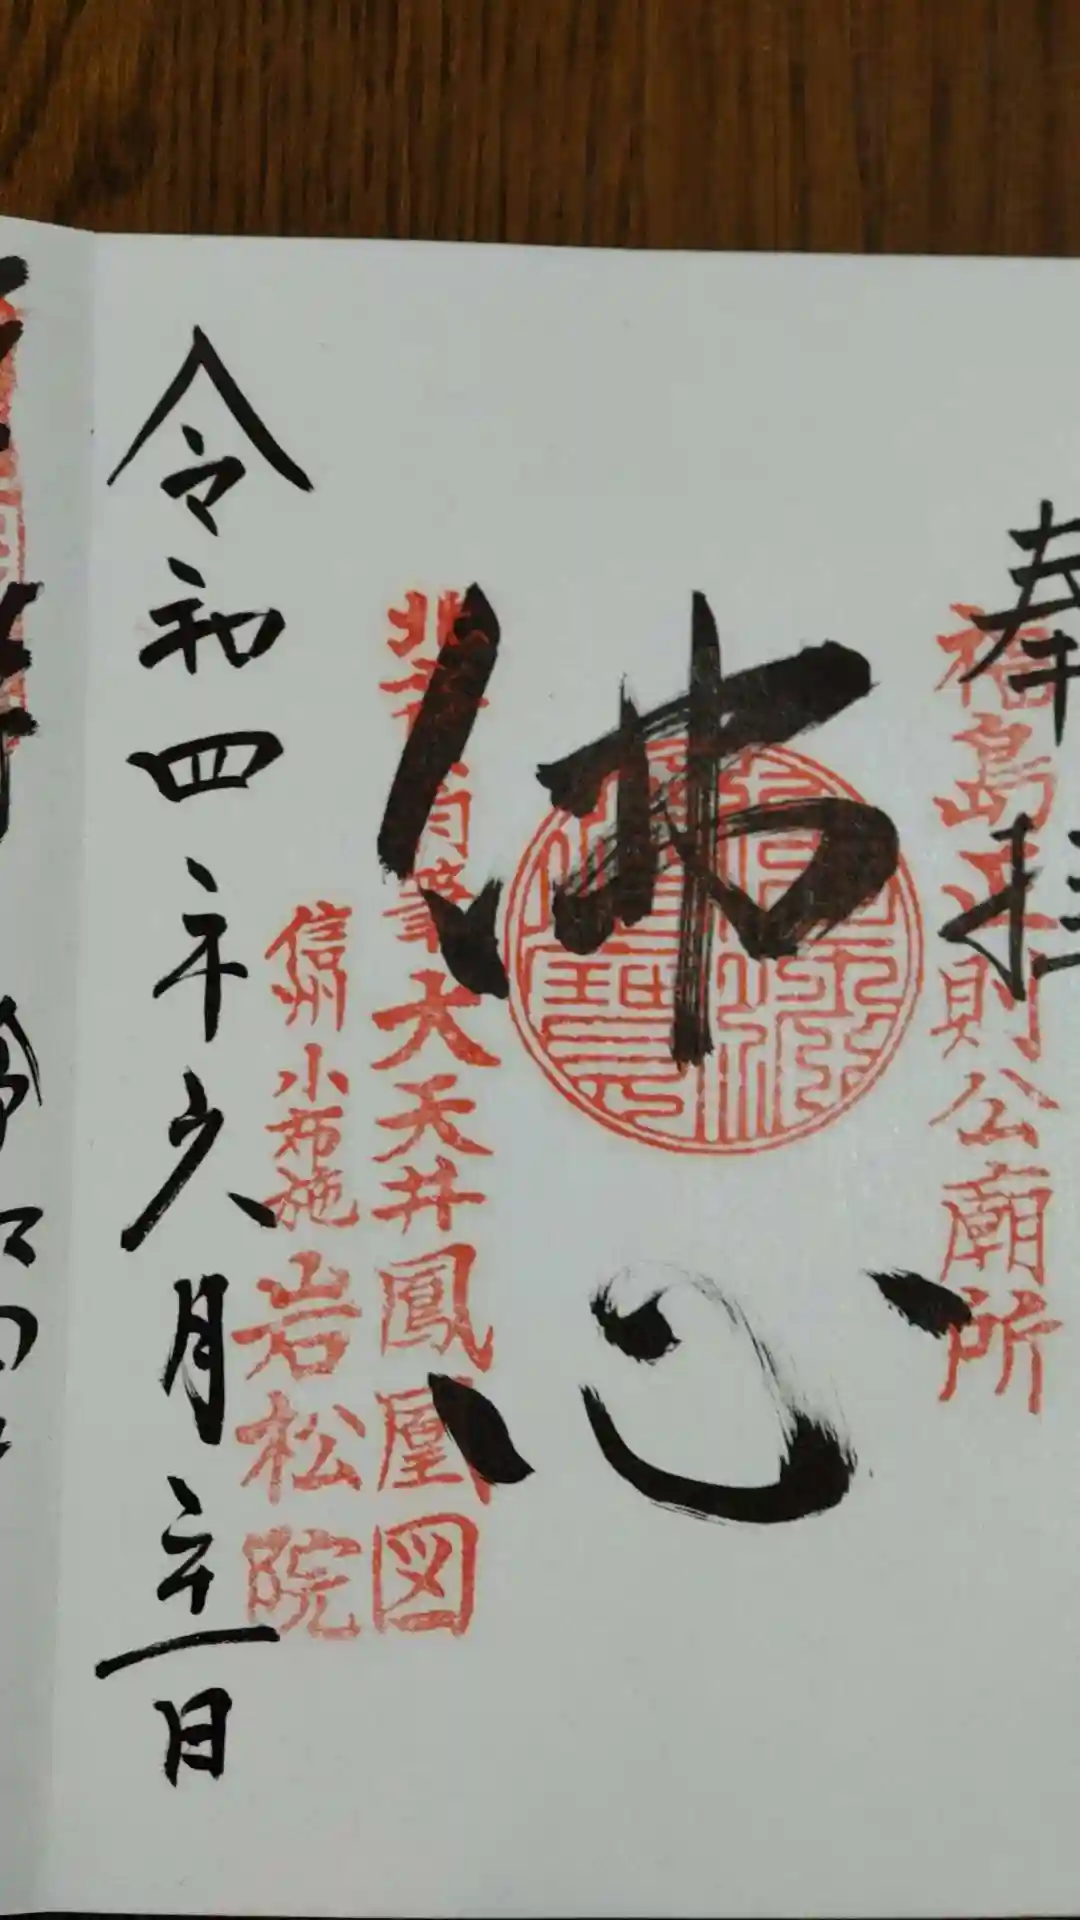 奉拝
福島正則公廟所
佛心
北斎肉筆大天井鳳凰図
信州小布施岩松院
令和四年六月二十一日